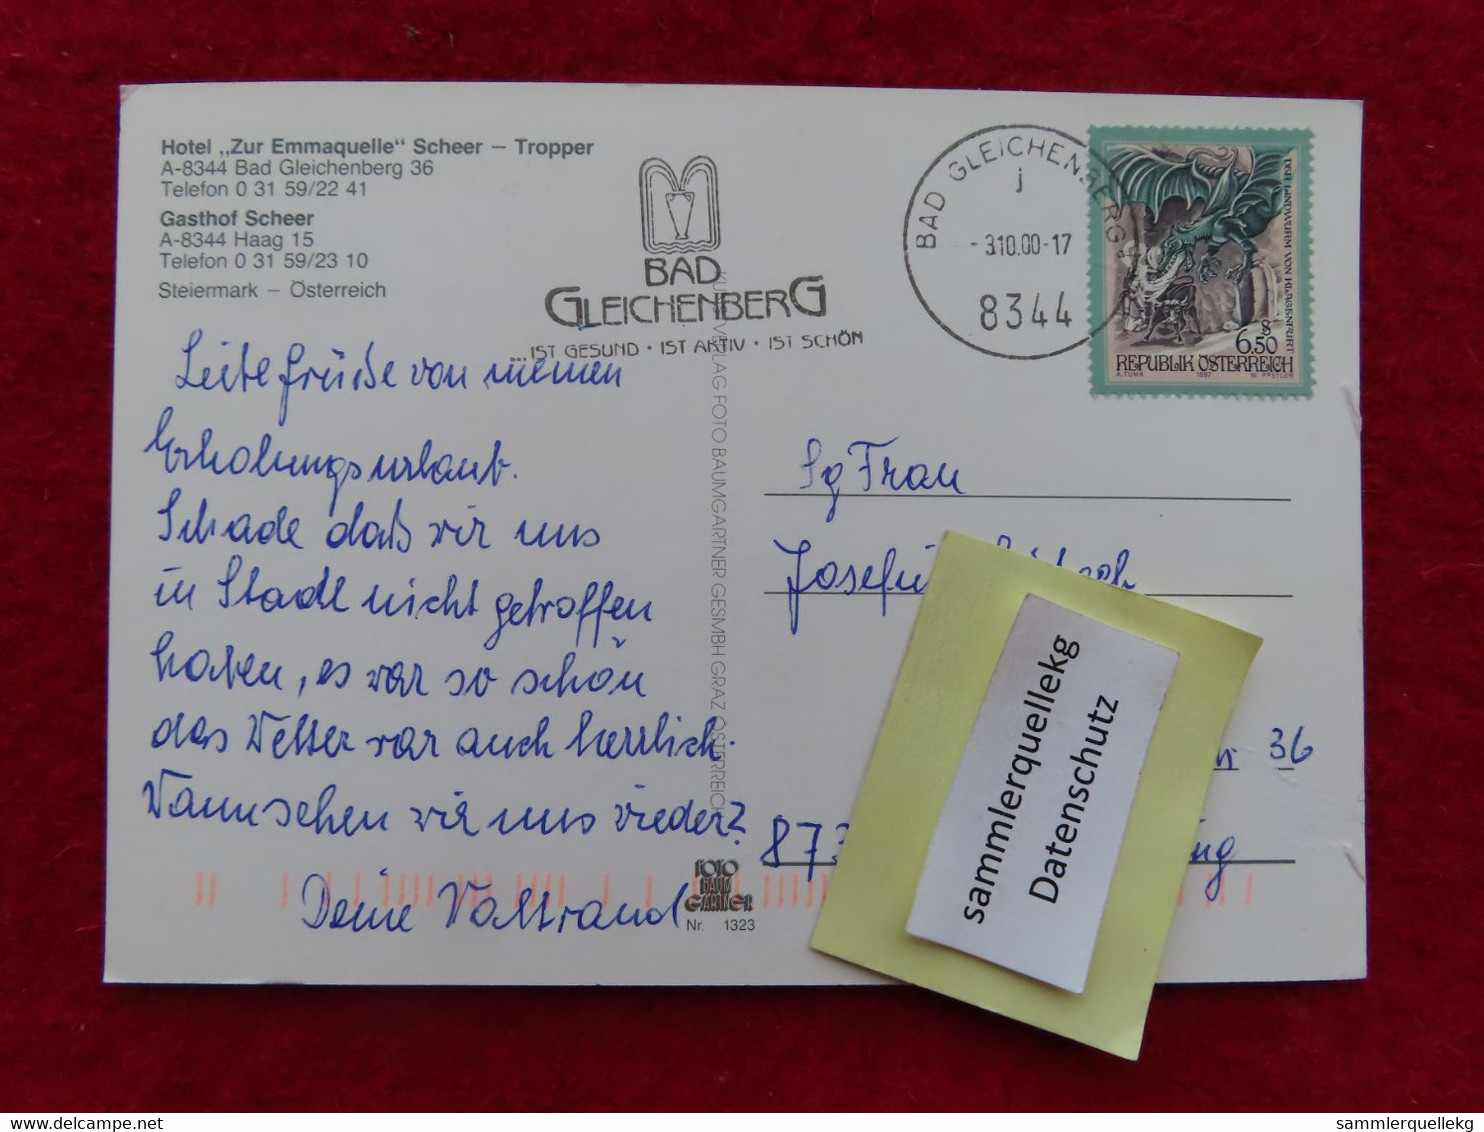 Hotel „Zur Emmaquelle“ Scheer – Tropper
A-8344 Bad Gleichenberg 36
Telefon 0 31 59/22 41
Gasthof Scheer
A-8344 Haag 15
Telefon 0 31 59/23 10
Steiermark – Österreich
BAD
GLEICHENBERG
...IST GESUND · IST AKTIV · IST SCHÖN
BAD GLEICHENBERG
j
- 3.10.00-17
8344
DER LINDWURM VON KLAGENFURT
S
6.50
REPUBLIK ÖSTERREICH
A. TUMA 1997 W. PFEILER
Liebe Grüße von meinen
Erholungsurlaub.
Schade daß wir uns
in Stadl nicht getroffen
haben, es war so schön
das Wetter war auch herrlich.
Wann sehen wir uns wieder?
Deine Waltraud
VERLAG FOTO BAUMGARTNER GESMBH GRAZ ÖSTERREICH
FOTO
BAUM
GARTNER
Nr. 1323
Sg Frau
36
873
sammlerquellekg
Datenschutz
delcampe.net
sammlerquellekg